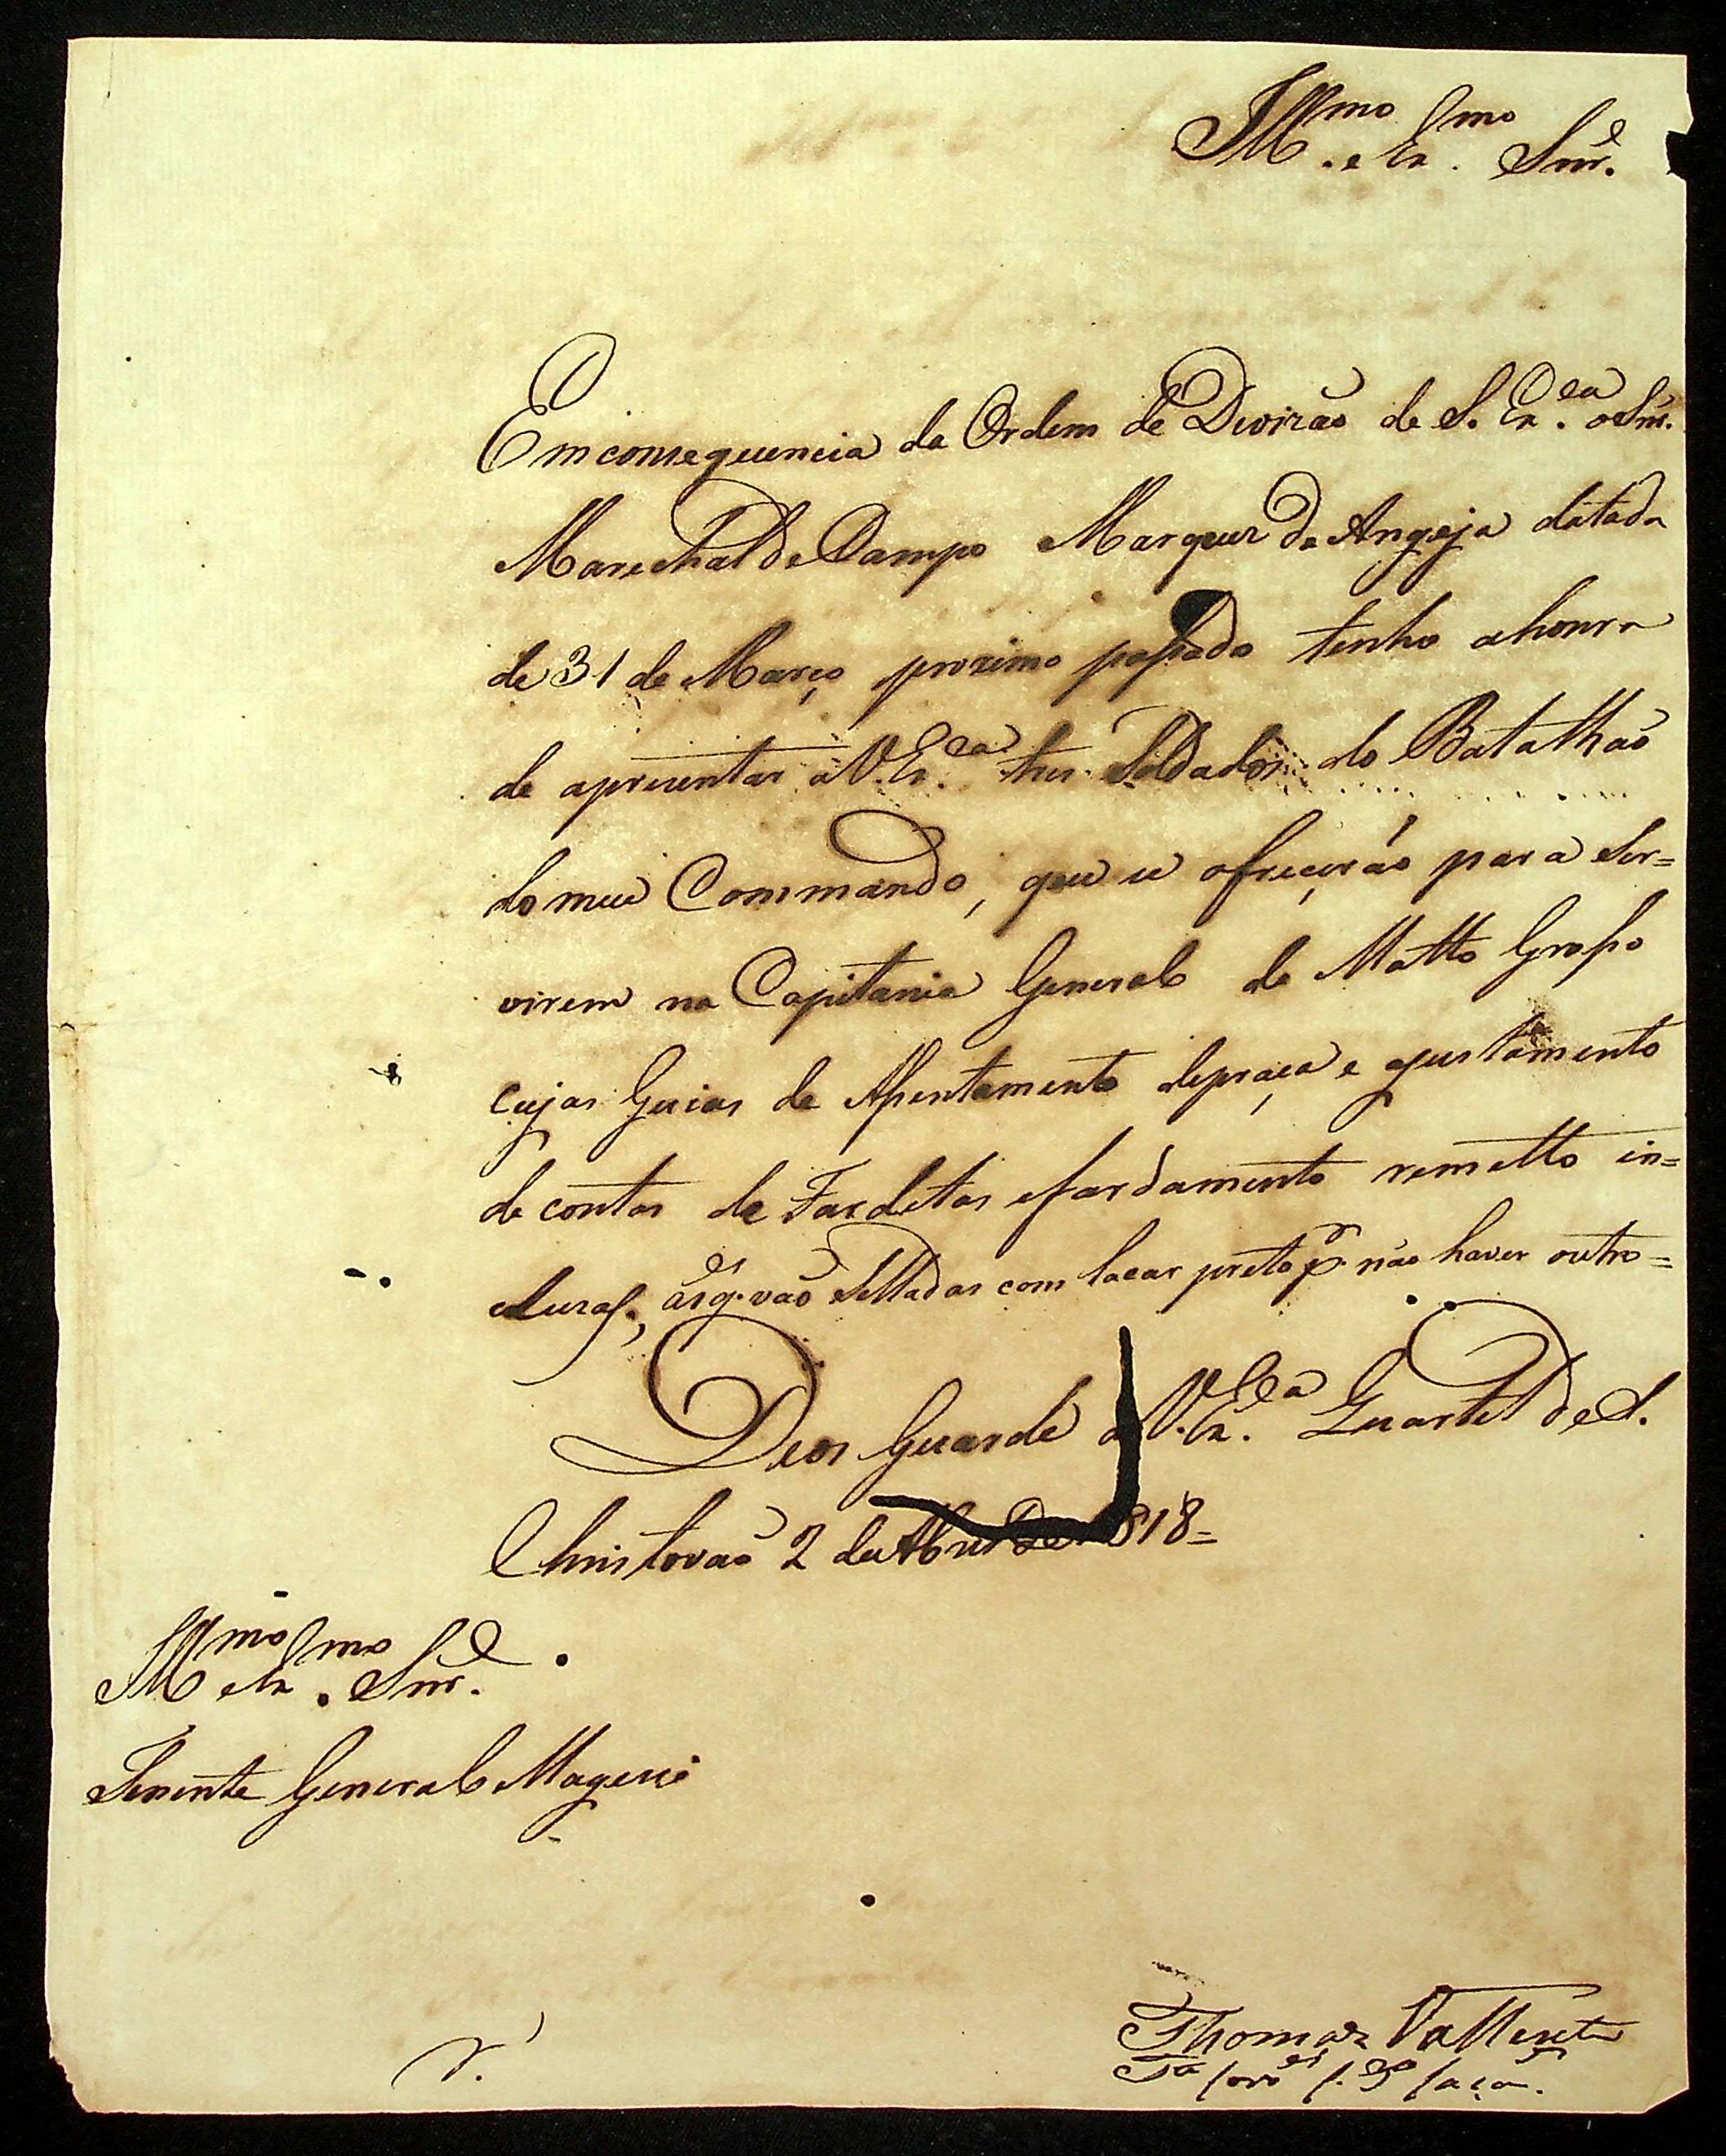 Ill.mo e Ex.mo Snr.
Em consequencia da Ordem de Divizão de S. Ex.cia o Snr.
Marechal de Campo Marquez de Angeja datada
de 31 de Março proximo passado tenho a honra
de apresentar a V. Ex.cia tres Soldados do Batalhão
do meu Commando, que se ofreçerão para Ser=
virem na Capitania General de Matto Grosso
cujas Guias de Assentamento de praça e ajustamento
de contas de Fardetas e fardamento remetto in=
cluras, as q.es vão Selladas com lacar preto p.r não haver outro=
Deos Guarde a V. Ex.cia Quartel de S.
Christovão 2 de Abril de 1818=
Ill.mo e Ex.mo Snr.
Tenente General Magessi
Thomaz